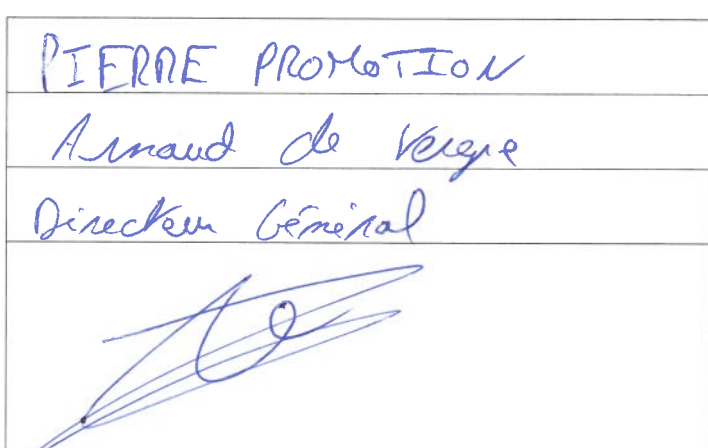 PIERRE PROMOTION
Arnaud de Vergne
Directeur Général